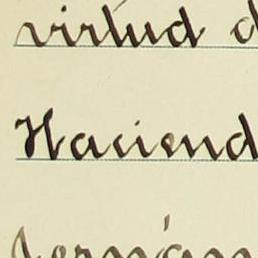 virtud d
Haciend